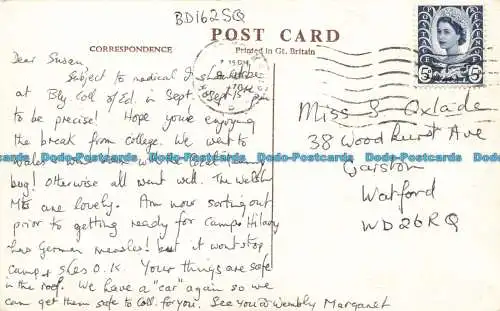 BD162SQ
POST CARD
CORRESPONDENCE
Printed in Gt. Britain
Dear Susan
Subject to medical I shall be
at Bly Coll of Ed. in Sept.
to be precise! Hope you're enjoying
the break from college. We went to
Wales
bug! Otherwise all went well. The Welsh
Mts are lovely. Am now sorting out
prior to getting ready for camp. Hilary
has German measles! but it wont stop
camp & shes O.K. Your things are safe
in the roof. We have a "car" again so we
can get them safe to Coll. for you. See you @ Wembly Margaret
Miss S Oxlade
38 Woodhurst Ave
Garston
Watford
WD26RQ
5D
Dodo-Postcards Dodo-Postcards Dodo-Postcards Dodo-Postcards Dodo-Postcards